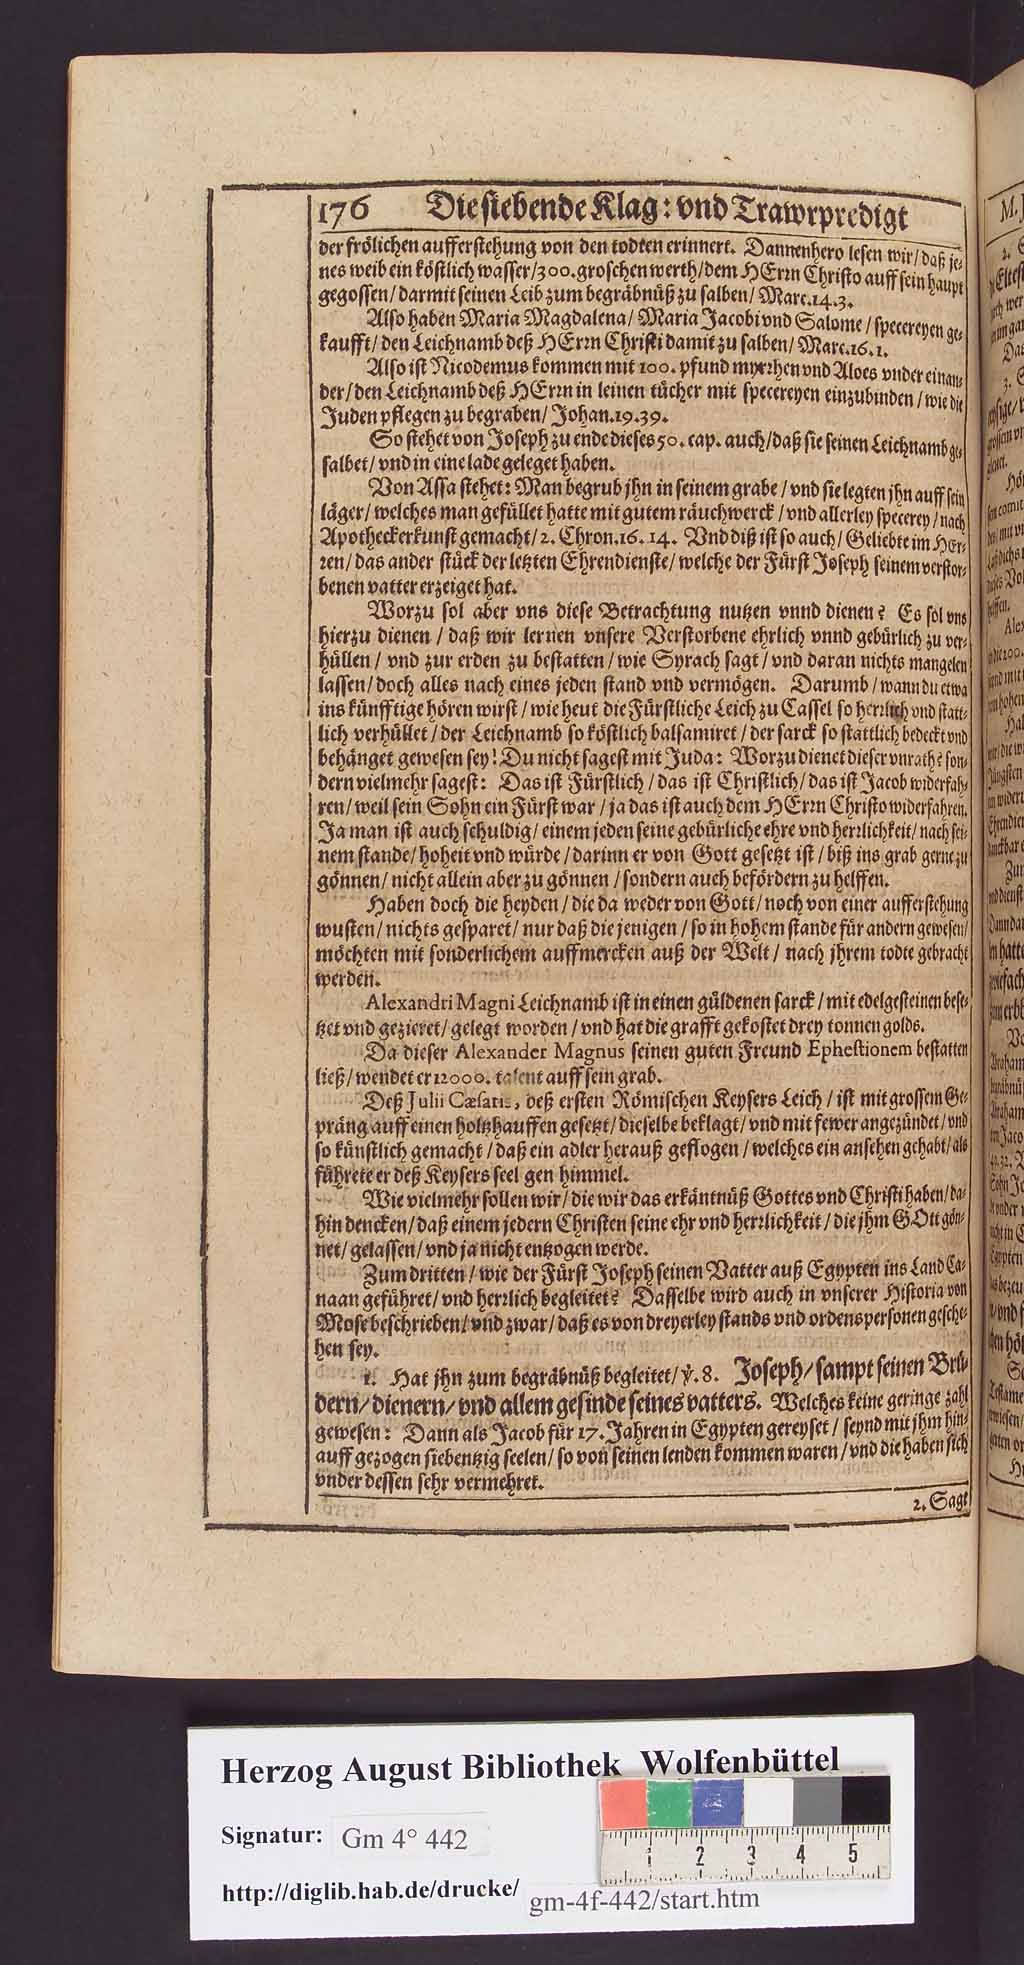 176 Die siebende Klag: vnd Trawrpredigt
der frölichen aufferstehung von den todten erinnert. Dannenhero lesen wir/ daß je-
nes weib ein köstlich wasser/ 300. groschen werth/ dem HErrn Christo auff sein haupt
gegossen/ darmit seinen Leib zum begräbnüß zu salben/ Marc. 14. 3.
Also haben Maria Magdalena/ Maria Jacobi vnd Salome/ specereyen ge-
kaufft/ den Leichnamb deß HErrn Christi damit zu salben/ Marc. 16. 1.
Also ist Nicodemus kommen mit 100. pfund myrrhen vnd Aloes vnder einan-
der/ den Leichnamb deß HErrn in leinen tücher mit specereyen einzubinden/ wie die
Juden pflegen zu begraben/ Johan. 19. 39.
So stehet von Joseph zu ende dieses 50. cap. auch/ daß sie seinen Leichnamb ge-
salbet/ vnd in eine lade geleget haben.
Von Assa stehet: Man begrub jhn in seinem grabe/ vnd sie legten jhn auff sein
läger/ welches man gefüllet hatte mit gutem räuchwerck/ vnd allerley specerey/ nach
Apotheckerkunst gemacht/ 2. Chron. 16. 14. Vnd diß ist so auch/ Geliebte im HEr-
ren/ das ander stück der letzten Ehrendienste/ welche der Fürst Joseph seinem verstor-
benen vatter erzeiget hat.
Worzu sol aber vns diese Betrachtung nutzen vnnd dienen? Es sol vns
hierzu dienen/ daß wir lernen vnsere Verstorbene ehrlich vnnd gebürlich zu ver-
hüllen/ vnd zur erden zu bestatten/ wie Syrach sagt/ vnd daran nichts mangelen
lassen/ doch alles nach eines jeden stand vnd vermögen. Darumb/ wann du etwa
ins künfftige hören wirst/ wie heut die Fürstliche Leich zu Cassel so herrlich vnd statt-
lich verhüllet/ der Leichnamb so köstlich balsamiret/ der sarck so stattlich bedeckt vnd
behänget gewesen sey! Du nicht sagest mit Juda: Worzu dienet dieser vnrath? son-
dern vielmehr sagest: Das ist Fürstlich/ das ist Christlich/ das ist Jacob widerfah-
ren/ weil sein Sohn ein Fürst war/ ja das ist auch dem HErrn Christo widerfahren.
Ja man ist auch schuldig/ einem jeden seine gebürliche ehre vnd herrlichkeit/ nach sei-
nem stande/ hoheit vnd würde/ darinn er von Gott gesetzt ist/ biß ins grab gerne zu
gönnen/ nicht allein aber zu gönnen/ sondern auch befördern zu helffen.
Haben doch die heyden/ die da weder von Gott/ noch von einer aufferstehung
wusten/ nichts gesparet/ nur daß die jenigen/ so in hohem stande für andern gewesen/
möchten mit sonderlichem auffmercken auß der Welt/ nach jhrem todte gebracht
werden.
Alexandri Magni Leichnamb ist in einen güldenen sarck/ mit edelgesteinen bese-
tzet vnd gezieret/ gelegt worden/ vnd hat die grafft gekostet drey tonnen golds.
Da dieser Alexander Magnus seinen guten Freund Ephestionem bestatten
ließ/ wendet er 12000. talent auff sein grab.
Deß Julii Cæsaris, deß ersten Römischen Keysers Leich/ ist mit grossem Ge-
präng auff einen holtzhauffen gesetzt/ dieselbe beklagt/ vnd mit fewer angezündet/ vnd
so künstlich gemacht/ daß ein adler herauß geflogen/ welches ein ansehen gehabt/ als
führete er deß Keysers seel gen himmel.
Wie vielmehr sollen wir/ die wir das erkäntnüß Gottes vnd Christi haben/ da-
hin dencken/ daß einem jedern Christen seine ehr vnd herrlichkeit/ die jhm GOtt gön-
net/ gelassen/ vnd ja nicht entzogen werde.
Zum dritten/ wie der Fürst Joseph seinen Vatter auß Egypten ins Land Ca-
naan geführet/ vnd herrlich begleitet? Dasselbe wird auch in vnserer Historia von
Mose beschrieben/ vnd zwar/ daß es von dreyerley stands vnd ordenspersonen gesche-
hen sey.
1. Hat jhn zum begräbnüß begleitet/ ℣. 8. Joseph/ sampt seinen Brü-
dern/ dienern/ vnd allem gesinde seines vatters. Welches keine geringe zahl
gewesen: Dann als Jacob für 17. Jahren in Egypten gereyset/ seynd mit jhm hin-
auff gezogen siebentzig seelen/ so von seinen lenden kommen waren/ vnd die haben sich
vnder dessen sehr vermehret.
2. Sagt
Herzog August Bibliothek Wolfenbüttel
Signatur: Gm 4° 442
http://diglib.hab.de/drucke/ gm-4f-442/start.htm
1 2 3 4 5